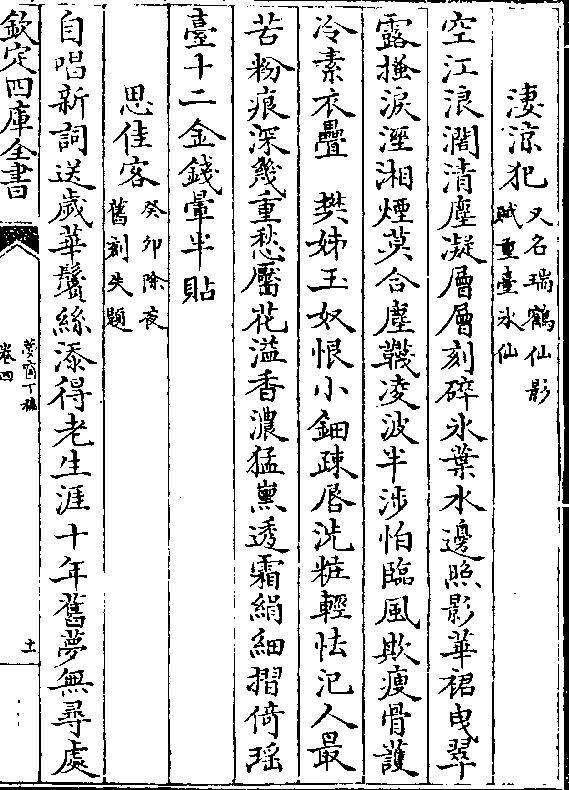 淒涼犯又名瑞鶴仙影
賦重臺水仙
空江浪濶清塵凝層層刻碎氷葉水邊照影華裾曳翠
露搔淚溼湘煙莫合塵韈凌波半涉怕臨風欺瘦骨護
冷素衣疊　樊姊玉奴恨小鈿疎唇洗粧輕怯汜人最
苦粉痕深幾重愁靨花溢香濃猛熏透霜綃細摺倚瑶
臺十二金錢暈半貼
思佳客癸卯除夜
舊刻失題
自唱新詞送歲華鬢絲添得老生涯十年舊夢無尋處
欽定四庫全書
夢窗丁稿
卷四
十